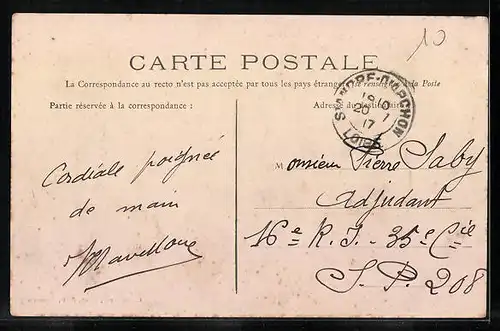 10
CARTE POSTALE
La Correspondance au recto n'est pas acceptée par tous les pays étrangers (Se renseigner à la Poste
Partie réservée à la correspondance :
Adresse du destinataire
ST ANDRE-D'APCHON
18 10
20 - 7
17
LOIRE
Cordiale poignée
de main
Monsieur Pierre Saby
Adjudant
16e R.I. - 35e Cie
S.P. 208